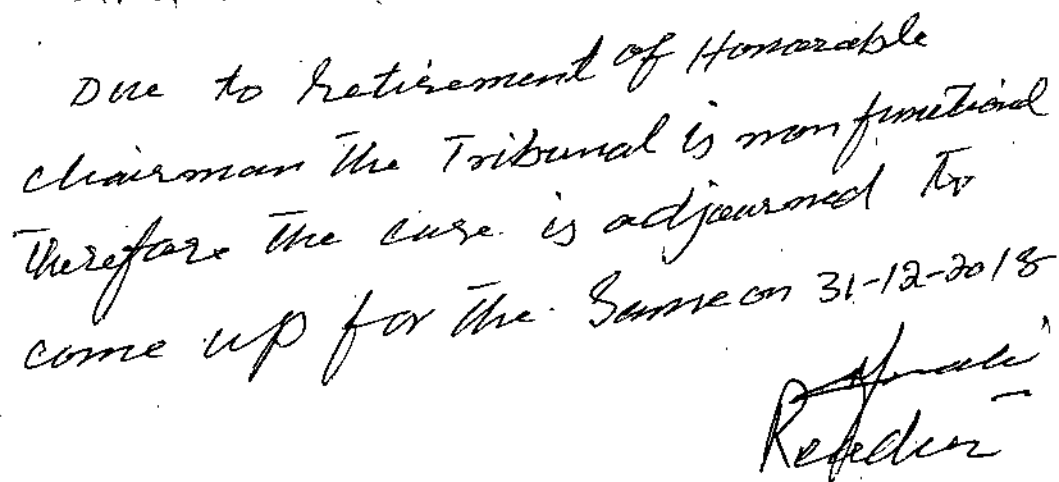 Due to Retirement of Honorable
chairman The Tribunal is non functional
Therefore The case is adjourned To
come up for The Same on 31-12-2018
Reader